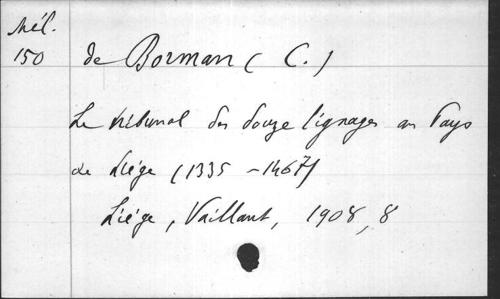 Mél.
150
de Borman ( C. )
Le tribunal des douze lignages au Pays
de Liége (1335 - 1467)
Liége, Vaillant, 1908, 8